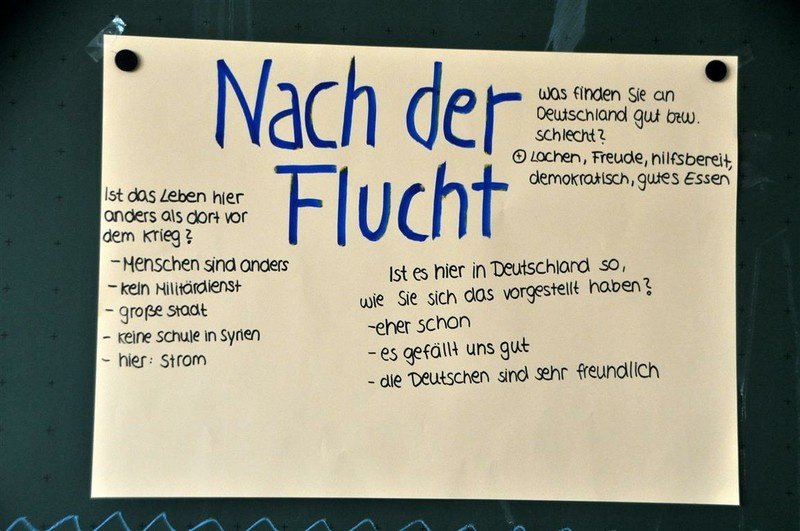 Nach der
Flucht
Was finden Sie an
Deutschland gut bzw.
schlecht?
⊕ Lachen, Freude, hilfsbereit,
demokratisch, gutes Essen
Ist das Leben hier
anders als dort vor
dem Krieg?
- Menschen sind anders
- kein Militärdienst
- große Stadt
- keine Schule in Syrien
- hier: Strom
Ist es hier in Deutschland so,
wie Sie sich das vorgestellt haben?
- eher schon
- es gefällt uns gut
- die Deutschen sind sehr freundlich